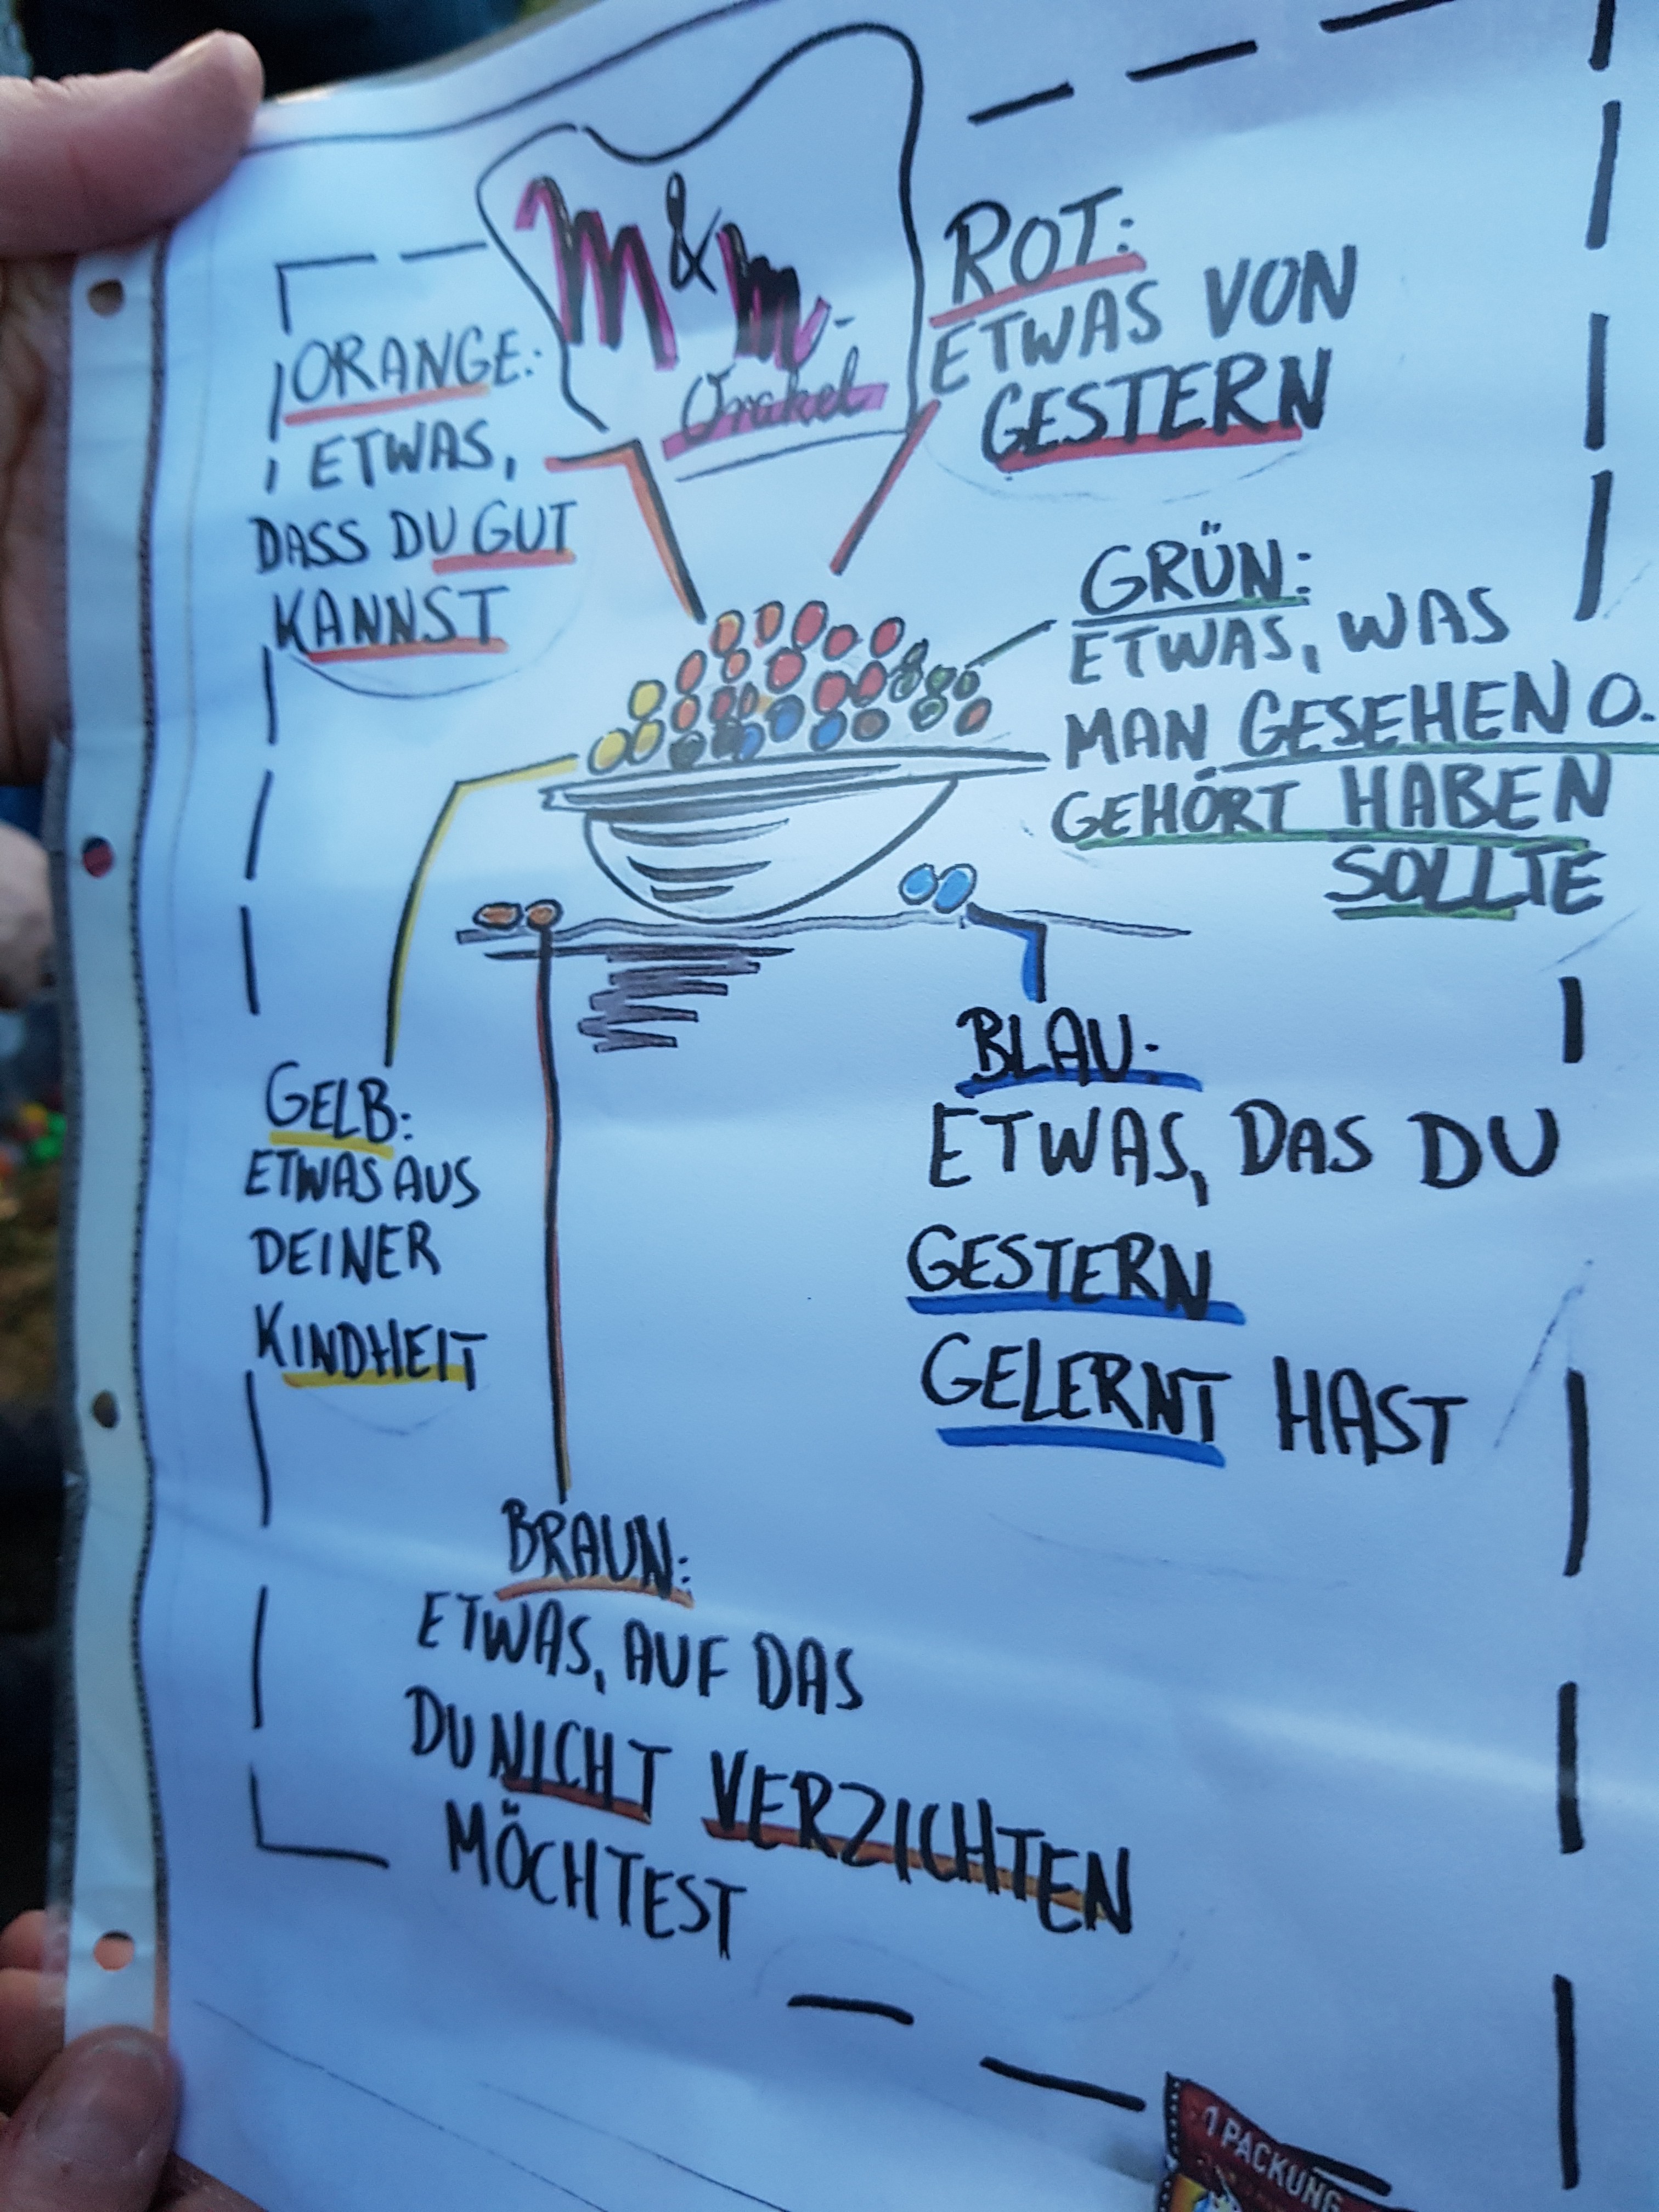 M&M-
Orakel
ORANGE:
ETWAS,
DASS DU GUT
KANNST
ROT:
ETWAS VON
GESTERN
GRÜN:
ETWAS, WAS
MAN GESEHEN O.
GEHÖRT HABEN
SOLLTE
GELB:
ETWAS AUS
DEINER
KINDHEIT
BLAU:
ETWAS, DAS DU
GESTERN
GELERNT HAST
BRAUN:
ETWAS, AUF DAS
DU NICHT VERZICHTEN
MÖCHTEST
1 PACKUNG